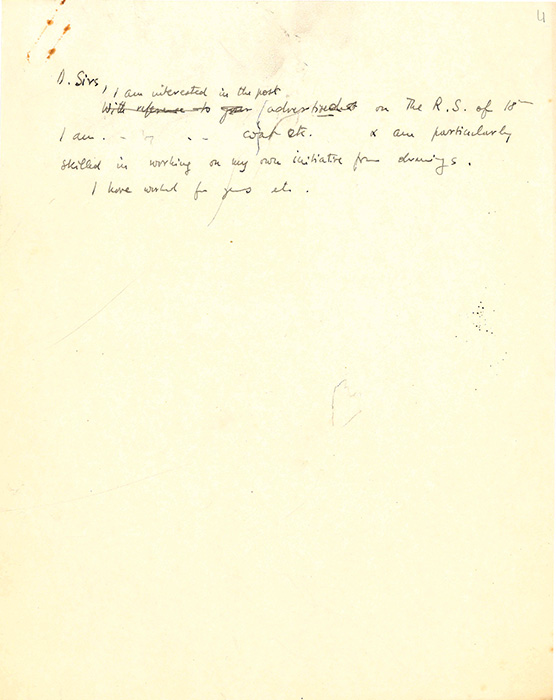 4
D. Sirs,
I am interested in the post
With reference to your advertised on The R.S. of 18
I am . - . . etc. & am particularly
skilled in working on my own initiative from drawings.
I have worked for yrs etc.